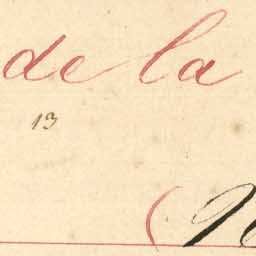 de la
13
(